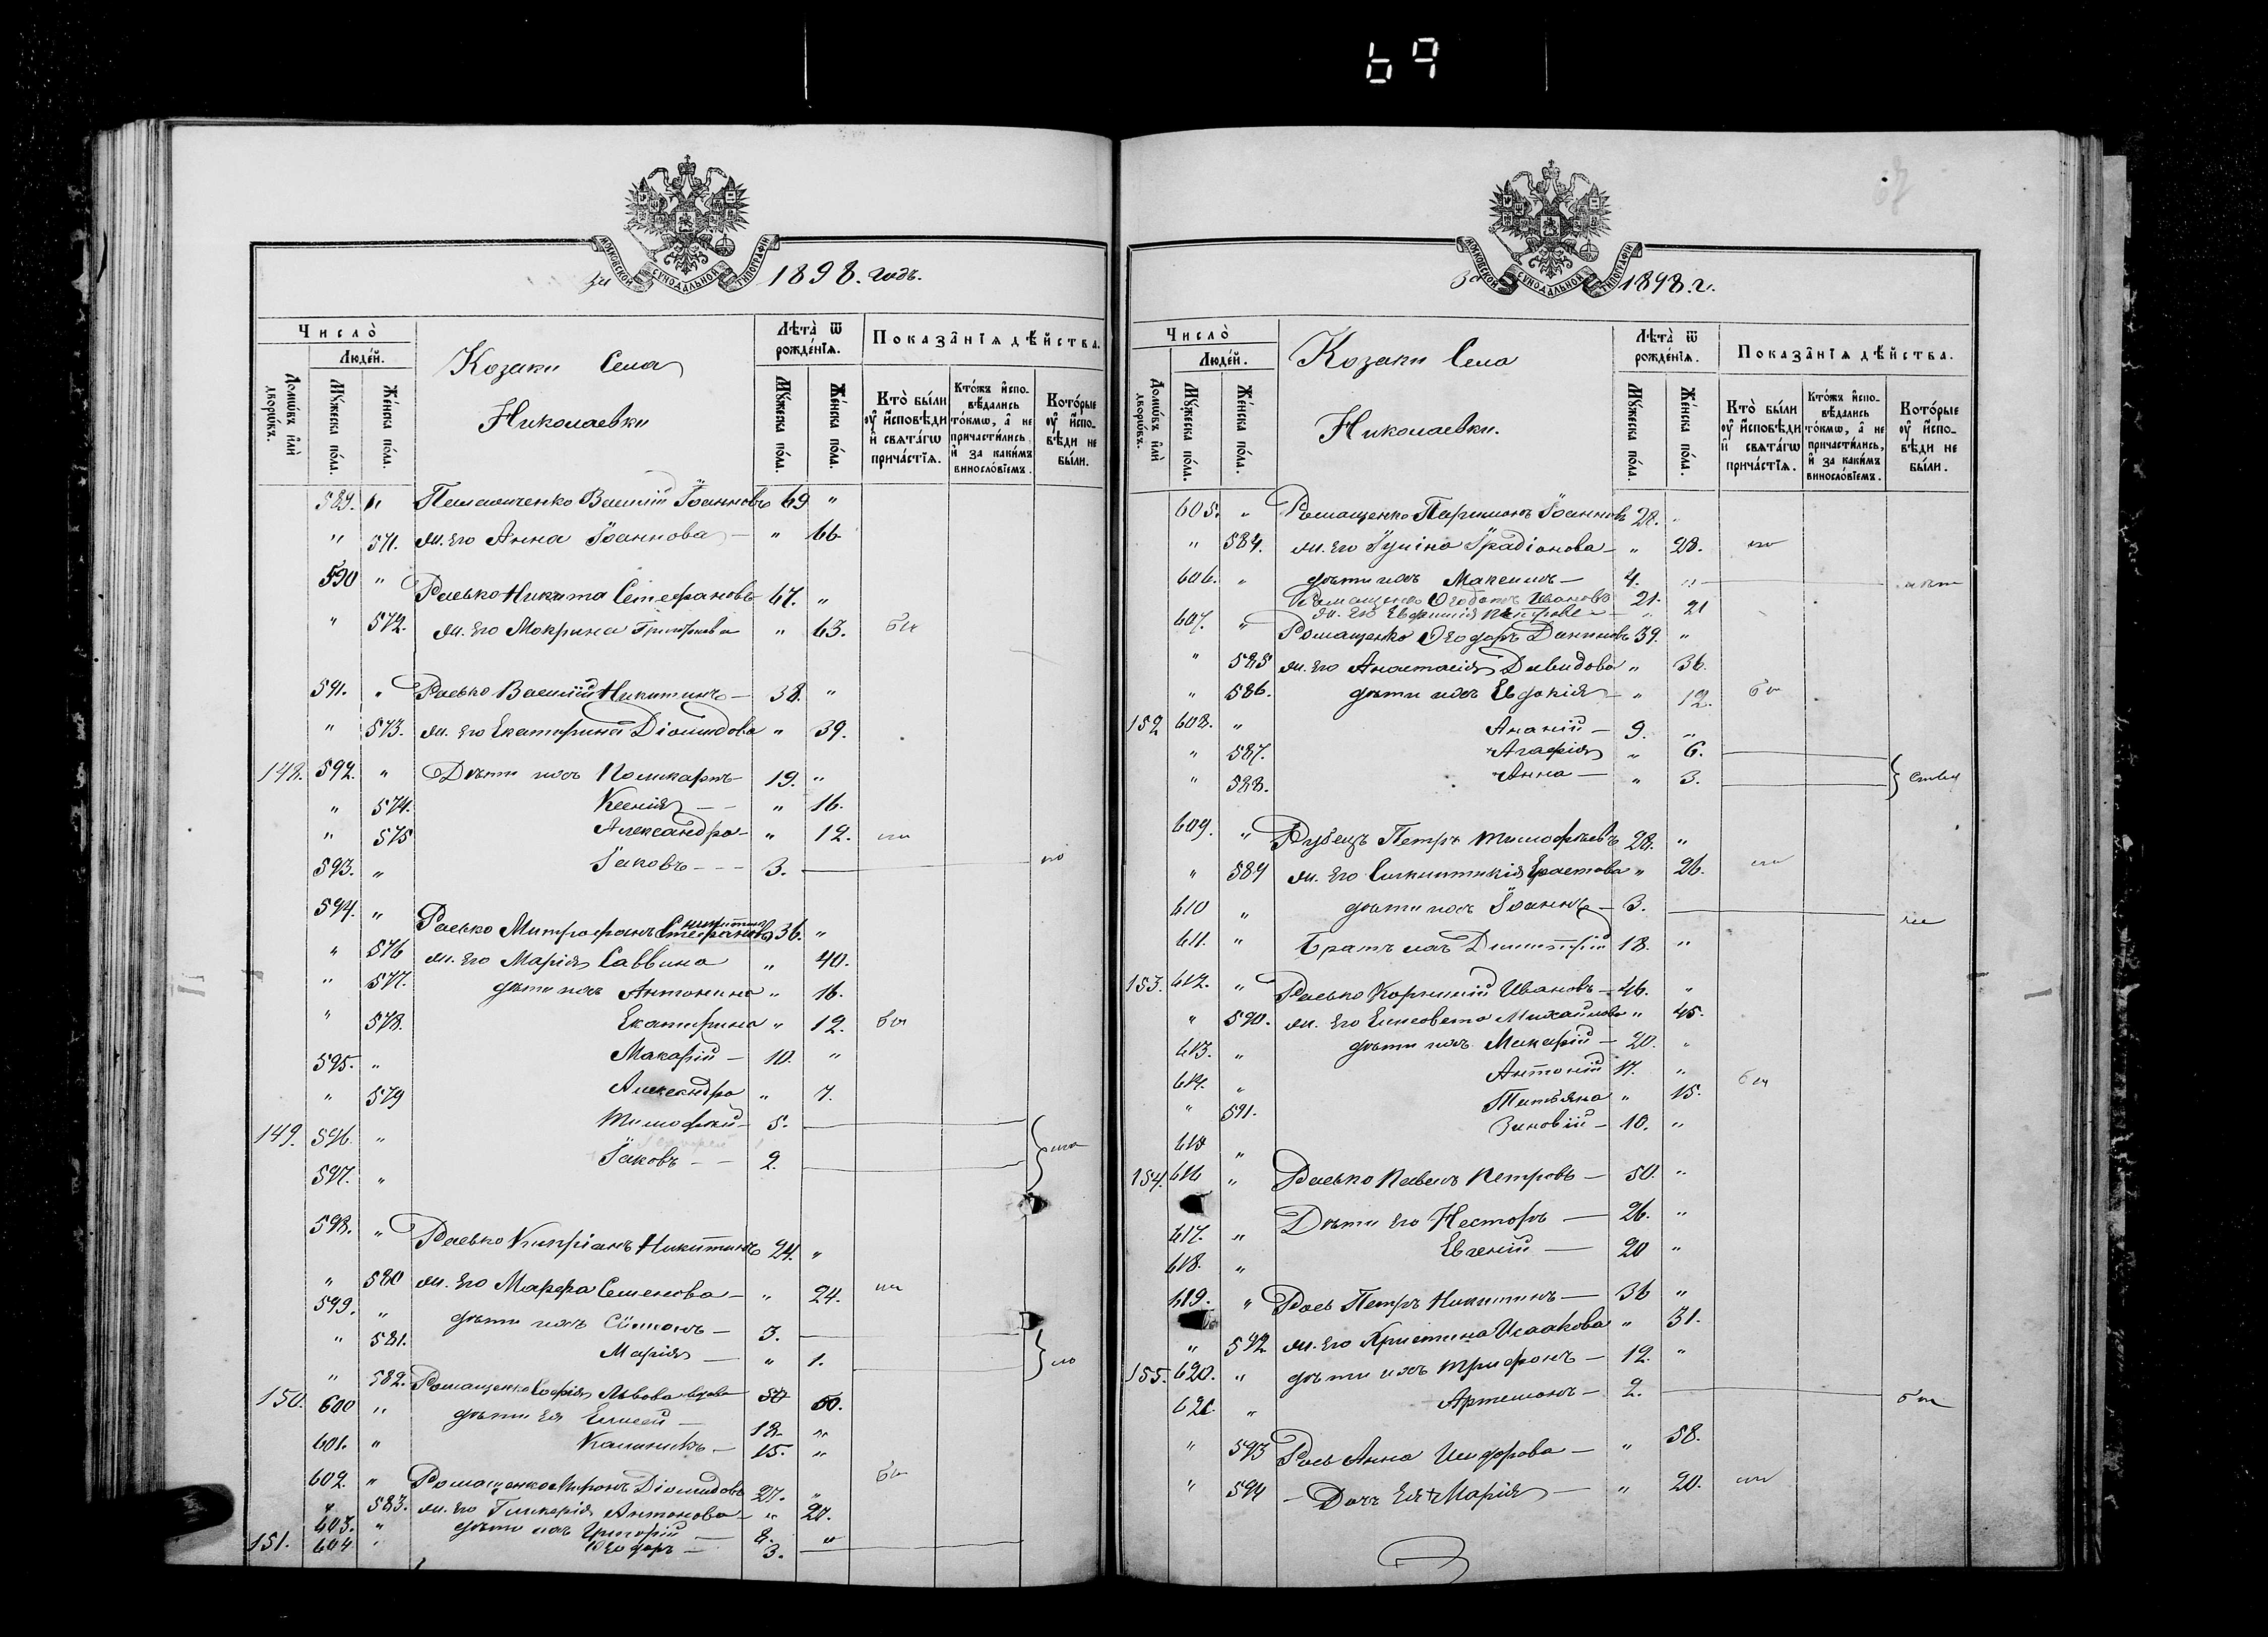 69
МОСКОВСКОЙ СѴНОДАЛЬНОЙ ТИПОГРАФІИ
За 1898. годъ.
Число̀
Людей.
Домѡвъ и҆лѝ дворѡвъ.
Мꙋжеска пола.
Женска пола.
Козаки Села
Николаевки
Лѣта̀ ѿ рожде́нїѧ.
Мꙋжеска пола.
Женска пола.
Показа̂нїѧ дѣ́йства.
Кто̀ бы́ли оу҆ и҆сповѣди и҆ свѧта́гѡ прича́стїѧ.
Кто́жъ и҆сповѣ́дались то́кмѡ, а҆ не причасти́лись и҆ за каки́мъ винослові́емъ.
Кото́рые оу҆ и҆сповѣди не бы́ли.
589. " Василій Іоанновъ 69 "
" 571. ж. его Анна Іоаннова — " 66
590 " Расько Никита Стефановъ 67. "
" 572. ж. его Мокрина Григорьева " 63.
591. " Расько Василій Никитинъ — 38. "
" 573. ж. его Екатерина Діомидова " 39.
148. 592. " Дѣти ихъ Поликарпъ — 19. "
" 574. Ксенія — — " 16.
" 575 Александра — " 12.
593. " Іаковъ — — — 3.
594. " Расько Митрофанъ Стефановъ Никитинъ 36. "
" 576 ж. его Марія Саввина " 40.
" 577. дѣти ихъ Антонина " 16.
" 578. Екатерина " 12.
595. " Макарій — 10. "
" 579 Александра " 7.
149. 596. " Тимофей — 5.
597. " Іаковъ — — 2.
598. " Расько Кипріанъ Никитинъ 24. "
" 580 ж. его Марфа Семенова — " 24.
599. " дѣти ихъ Симонъ — 3.
" 581. Марія — " 1.
" 582. Ромащенко Софія Львова вдова 50 50.
150. 600 " дѣти ея Елисей — 18. "
601. " Калиникъ — 15. "
602. " Ромащенко Миронъ Діомидовъ 27. "
" 583. ж. его Гликерія Антонова — " 27.
603. " дѣти ихъ Григорій — 8. "
151. 604 " Ѳеодоръ — 3.
МОСКОВСКОЙ СѴНОДАЛЬНОЙ ТИПОГРАФІИ
За 1898. г.
Число̀
Людей.
Домѡвъ и҆лѝ дворѡвъ.
Мꙋжеска пола.
Женска пола.
Козаки Села
Николаевки.
Лѣта̀ ѿ рожде́нїѧ.
Мꙋжеска пола.
Женска пола.
Показа̂нїѧ дѣ́йства.
Кто̀ бы́ли оу҆ и҆сповѣди и҆ свѧта́гѡ прича́стїѧ.
Кто́жъ и҆сповѣ́дались то́кмѡ, а҆ не причасти́лись, и҆ за каки́мъ винослові́емъ.
Кото́рые оу҆ и҆сповѣди не бы́ли.
605. " Ромащенко Іоанновъ 28. "
" 584. ж. его — " 28.
606. " дѣти ихъ Максимъ — 4. "
Ромащенко Ивановъ 21.
ж. его Евфимія Петрова — " 21
607. " Ромащенко Ѳеодоръ 39. "
" 585 ж. его Анастасія Давидова " 36.
" 586. дѣти ихъ Евдокія — " 12.
152 608. " Ананій — 9. "
" 587. Агафія " 6.
" 588. Анна — " 3.
609. " Рубецъ Петръ Тимофѣевъ 28. "
" 589 ж. его Ерастова " 26.
610 " дѣти ихъ Іоаннъ — 3.
611. " Братъ ихъ Димитрій 18. "
153. 612. " Расько Корнилій Ивановъ — 46. "
" 590. ж. его Елисавета Михайлова " 45.
613. " дѣти ихъ Макарій — 20. "
614. " Антоній 17. "
" 591. Татьяна " 15.
615 " Зиновій — 10. "
154. 616 " Расько Павелъ Петровъ — 50. "
617. " Дѣти его Несторъ — 26. "
618. " Евгеній — 20 "
619. " Рась Петръ Никитинъ — 36 "
" 592 ж. его Христина Исаакова " 31.
155. 620. " дѣти ихъ Трифонъ — 12. "
621. " Артемонъ — 2.
" 593 Рась Анна — " 58.
" 594 — Дочь ея Марія — " 20.